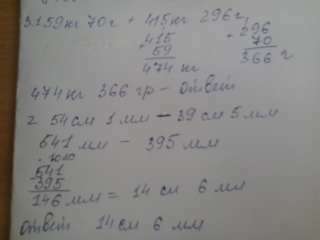 3. 159кг 70г + 415кг 296г
415 + 296
59 70
474 кг 366 г
474кг 366 гр - ответ
2 54см 1мм - 39см 5мм
541мм - 395мм
541
395
146мм = 14см 6мм
ответ 14см 6мм